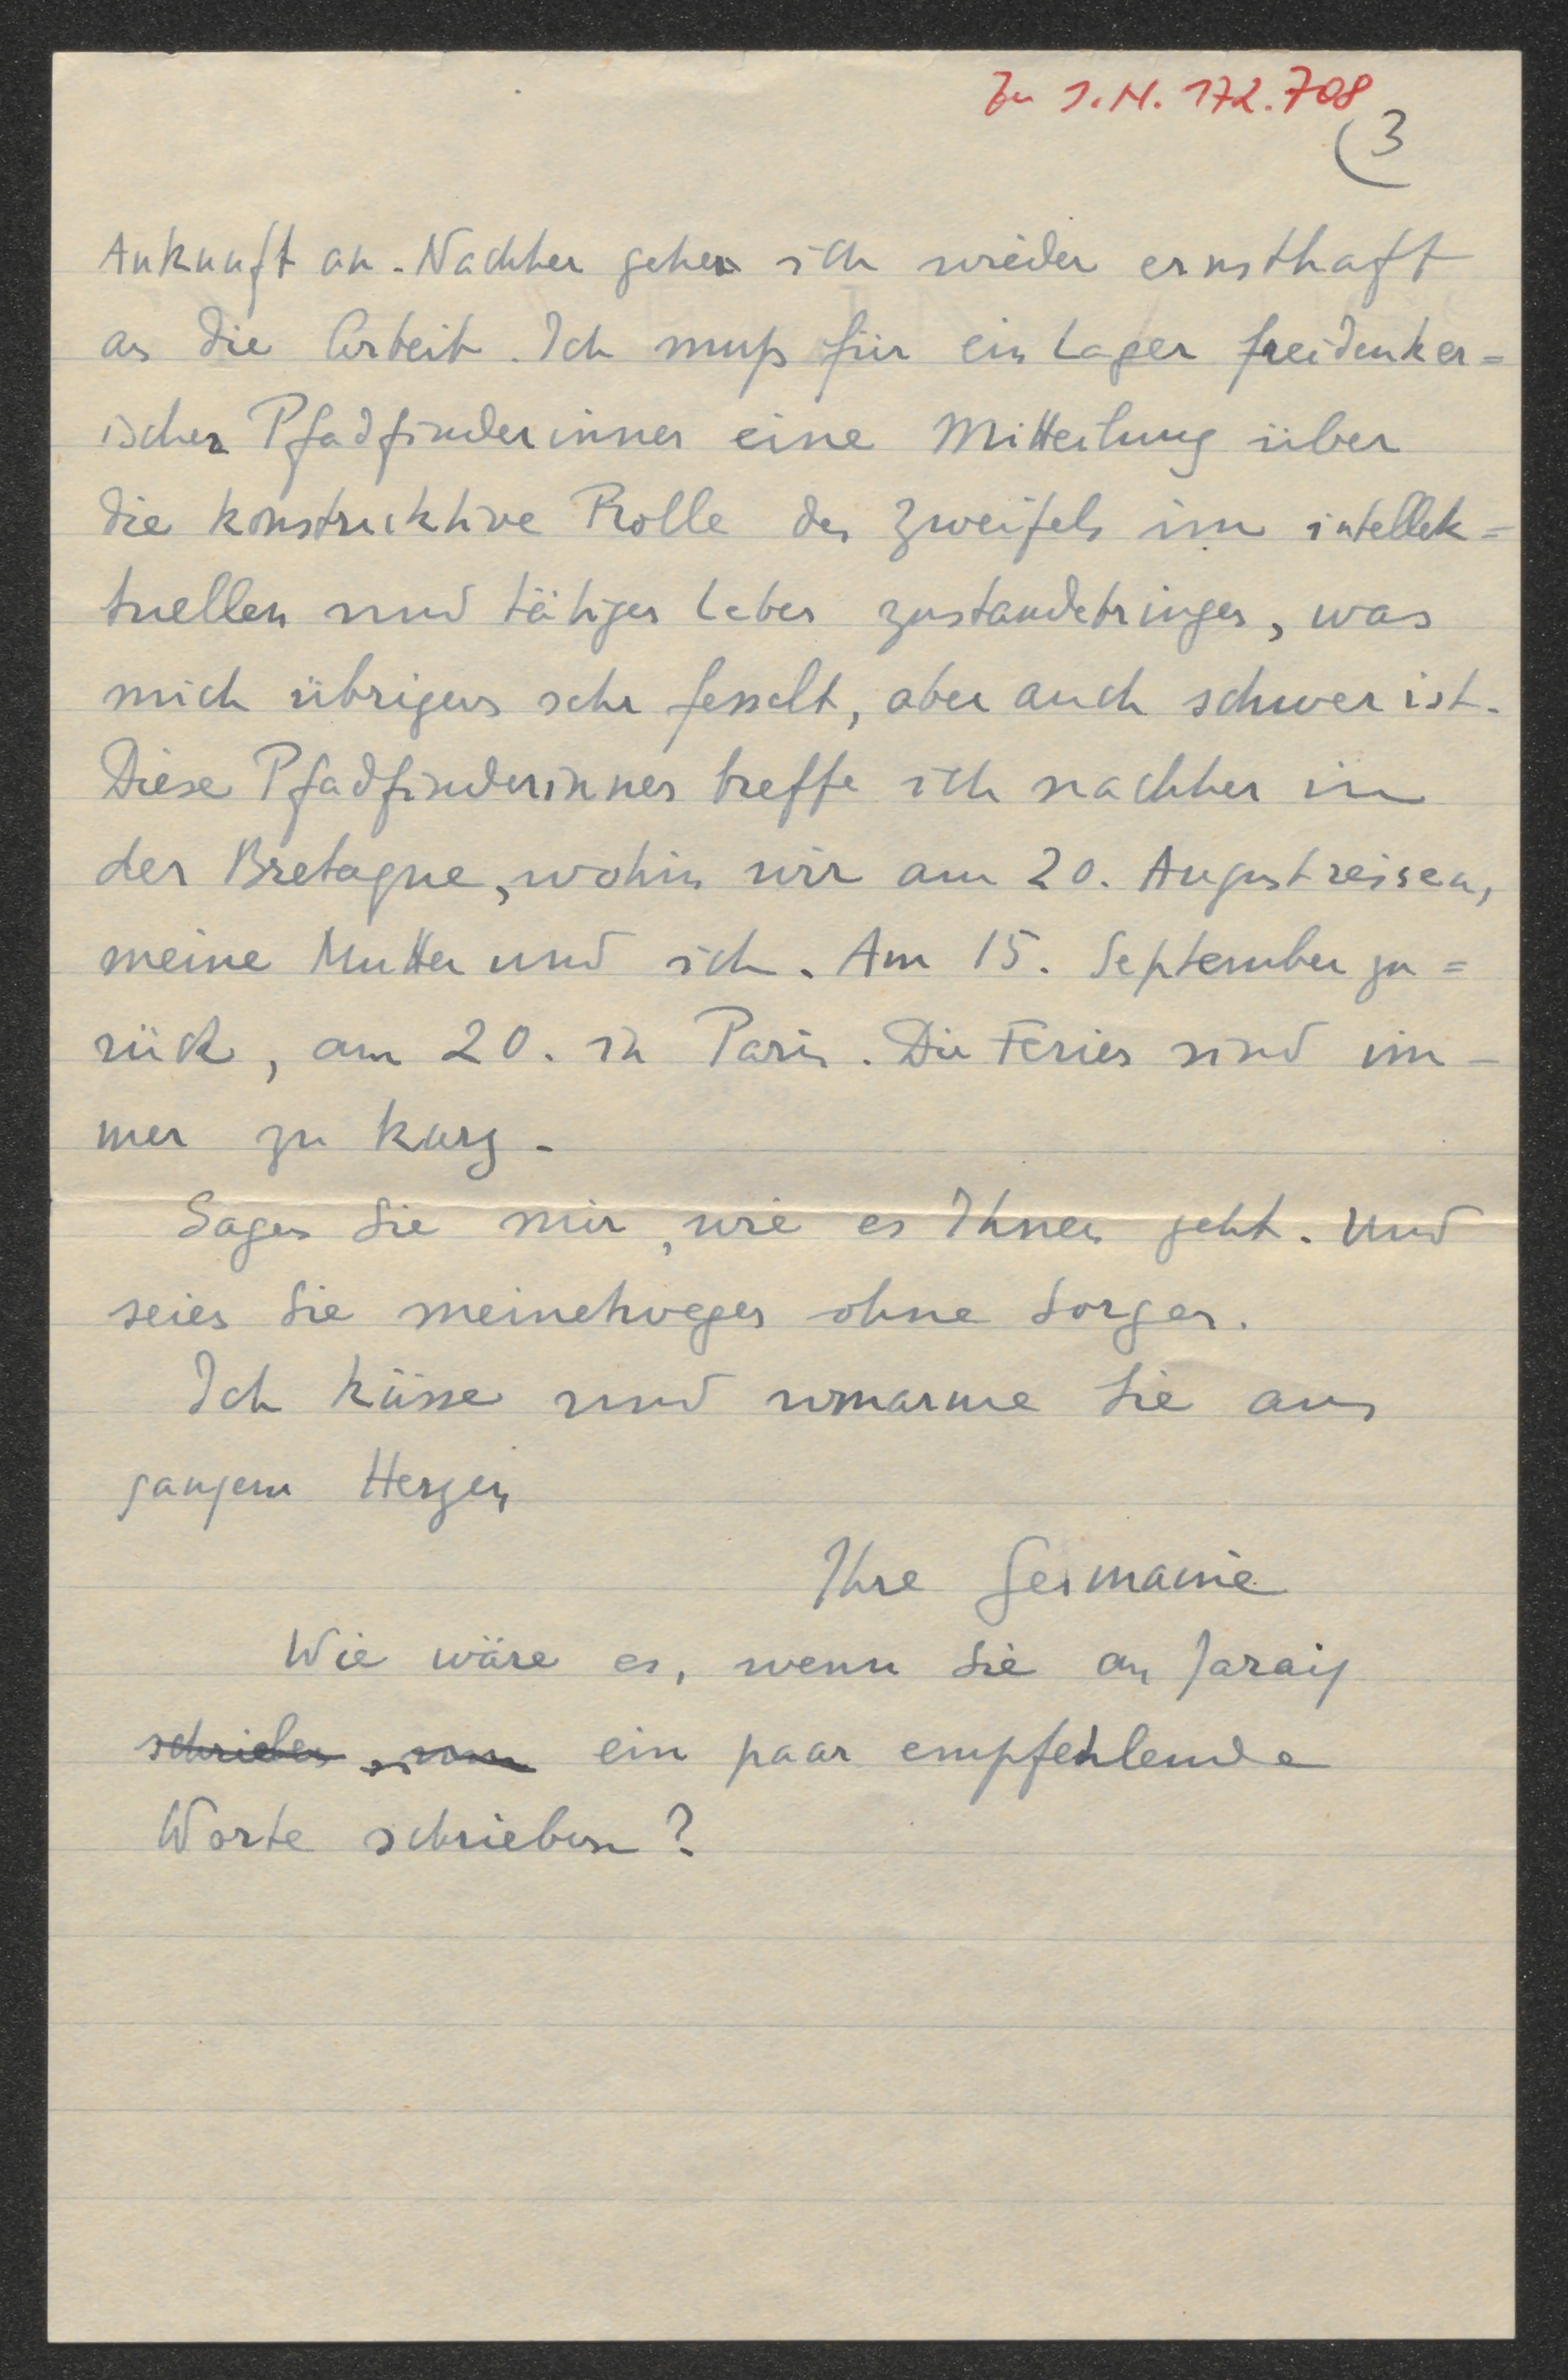 Zu I.N. 172.708
3
Ankunft an. Nachher gehen ich wieder ernsthaft
an die Arbeit. Ich muß für ein Lager freidenker=
ischen Pfadfinderinnen eine Mitteilung über
die konstrucktive Rolle des Zweifels im intellek=
tuellen und tätigen Leben zustandebringen, was
mich übrigens sehr fesselt, aber auch schwer ist.
Diese Pfadfinderinnen treffe ich nachher in
der Bretagne, wohin wir am 20. August reisen,
meine Mutter und ich. Am 15. September zu=
rück, am 20. in Paris. Die Ferien sind im-
mer zu kurz.
Sagen Sie mir, wie es Ihnen geht. Und
seien Sie meinetwegen ohne Sorgen.
Ich küsse und umarme Sie aus
ganzem Herzen
Ihre Germaine
Wie wäre es, wenn Sie an
schrieben ein paar empfehlende
Worte schrieben?